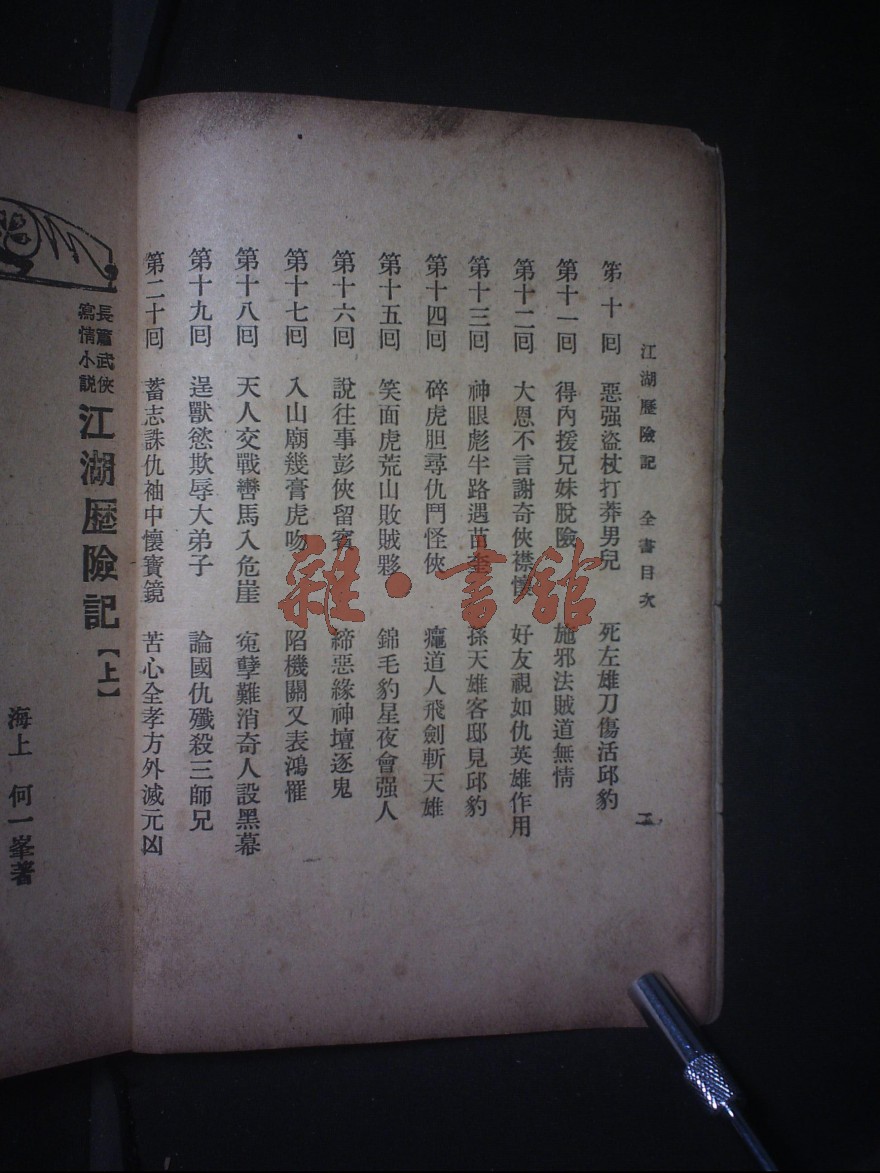 江湖歷險記　全書目次　二
第十回　惡强盜杖打莽男兒　死左雄刀傷活邱豹
第十一回　得內援兄妹脫險　施邪法賊道無情
第十二回　大恩不言謝奇俠襟懷　好友視如仇英雄作用
第十三回　神眼彪半路遇苗奎　孫天雄客邸見邱豹
第十四回　碎虎胆尋仇鬥怪俠　瘋道人飛劍斬天雄
第十五回　笑面虎荒山敗賊夥　錦毛豹星夜會强人
第十六回　說往事彭俠留賓　締惡緣神壇逐鬼
第十七回　入山廟幾膏虎吻　陷機關又表鴻罹
第十八回　天人交戰轡馬入危崖　寃孽難消奇人設黑幕
第十九回　逞獸慾欺辱大弟子　論國仇殲殺三師兄
第二十回　蓄志誅仇袖中懷寶鏡　苦心全孝方外滅元凶
長篇武俠
寫情小說
江湖歷險記【上】
海上　何一峯著
雜·書館